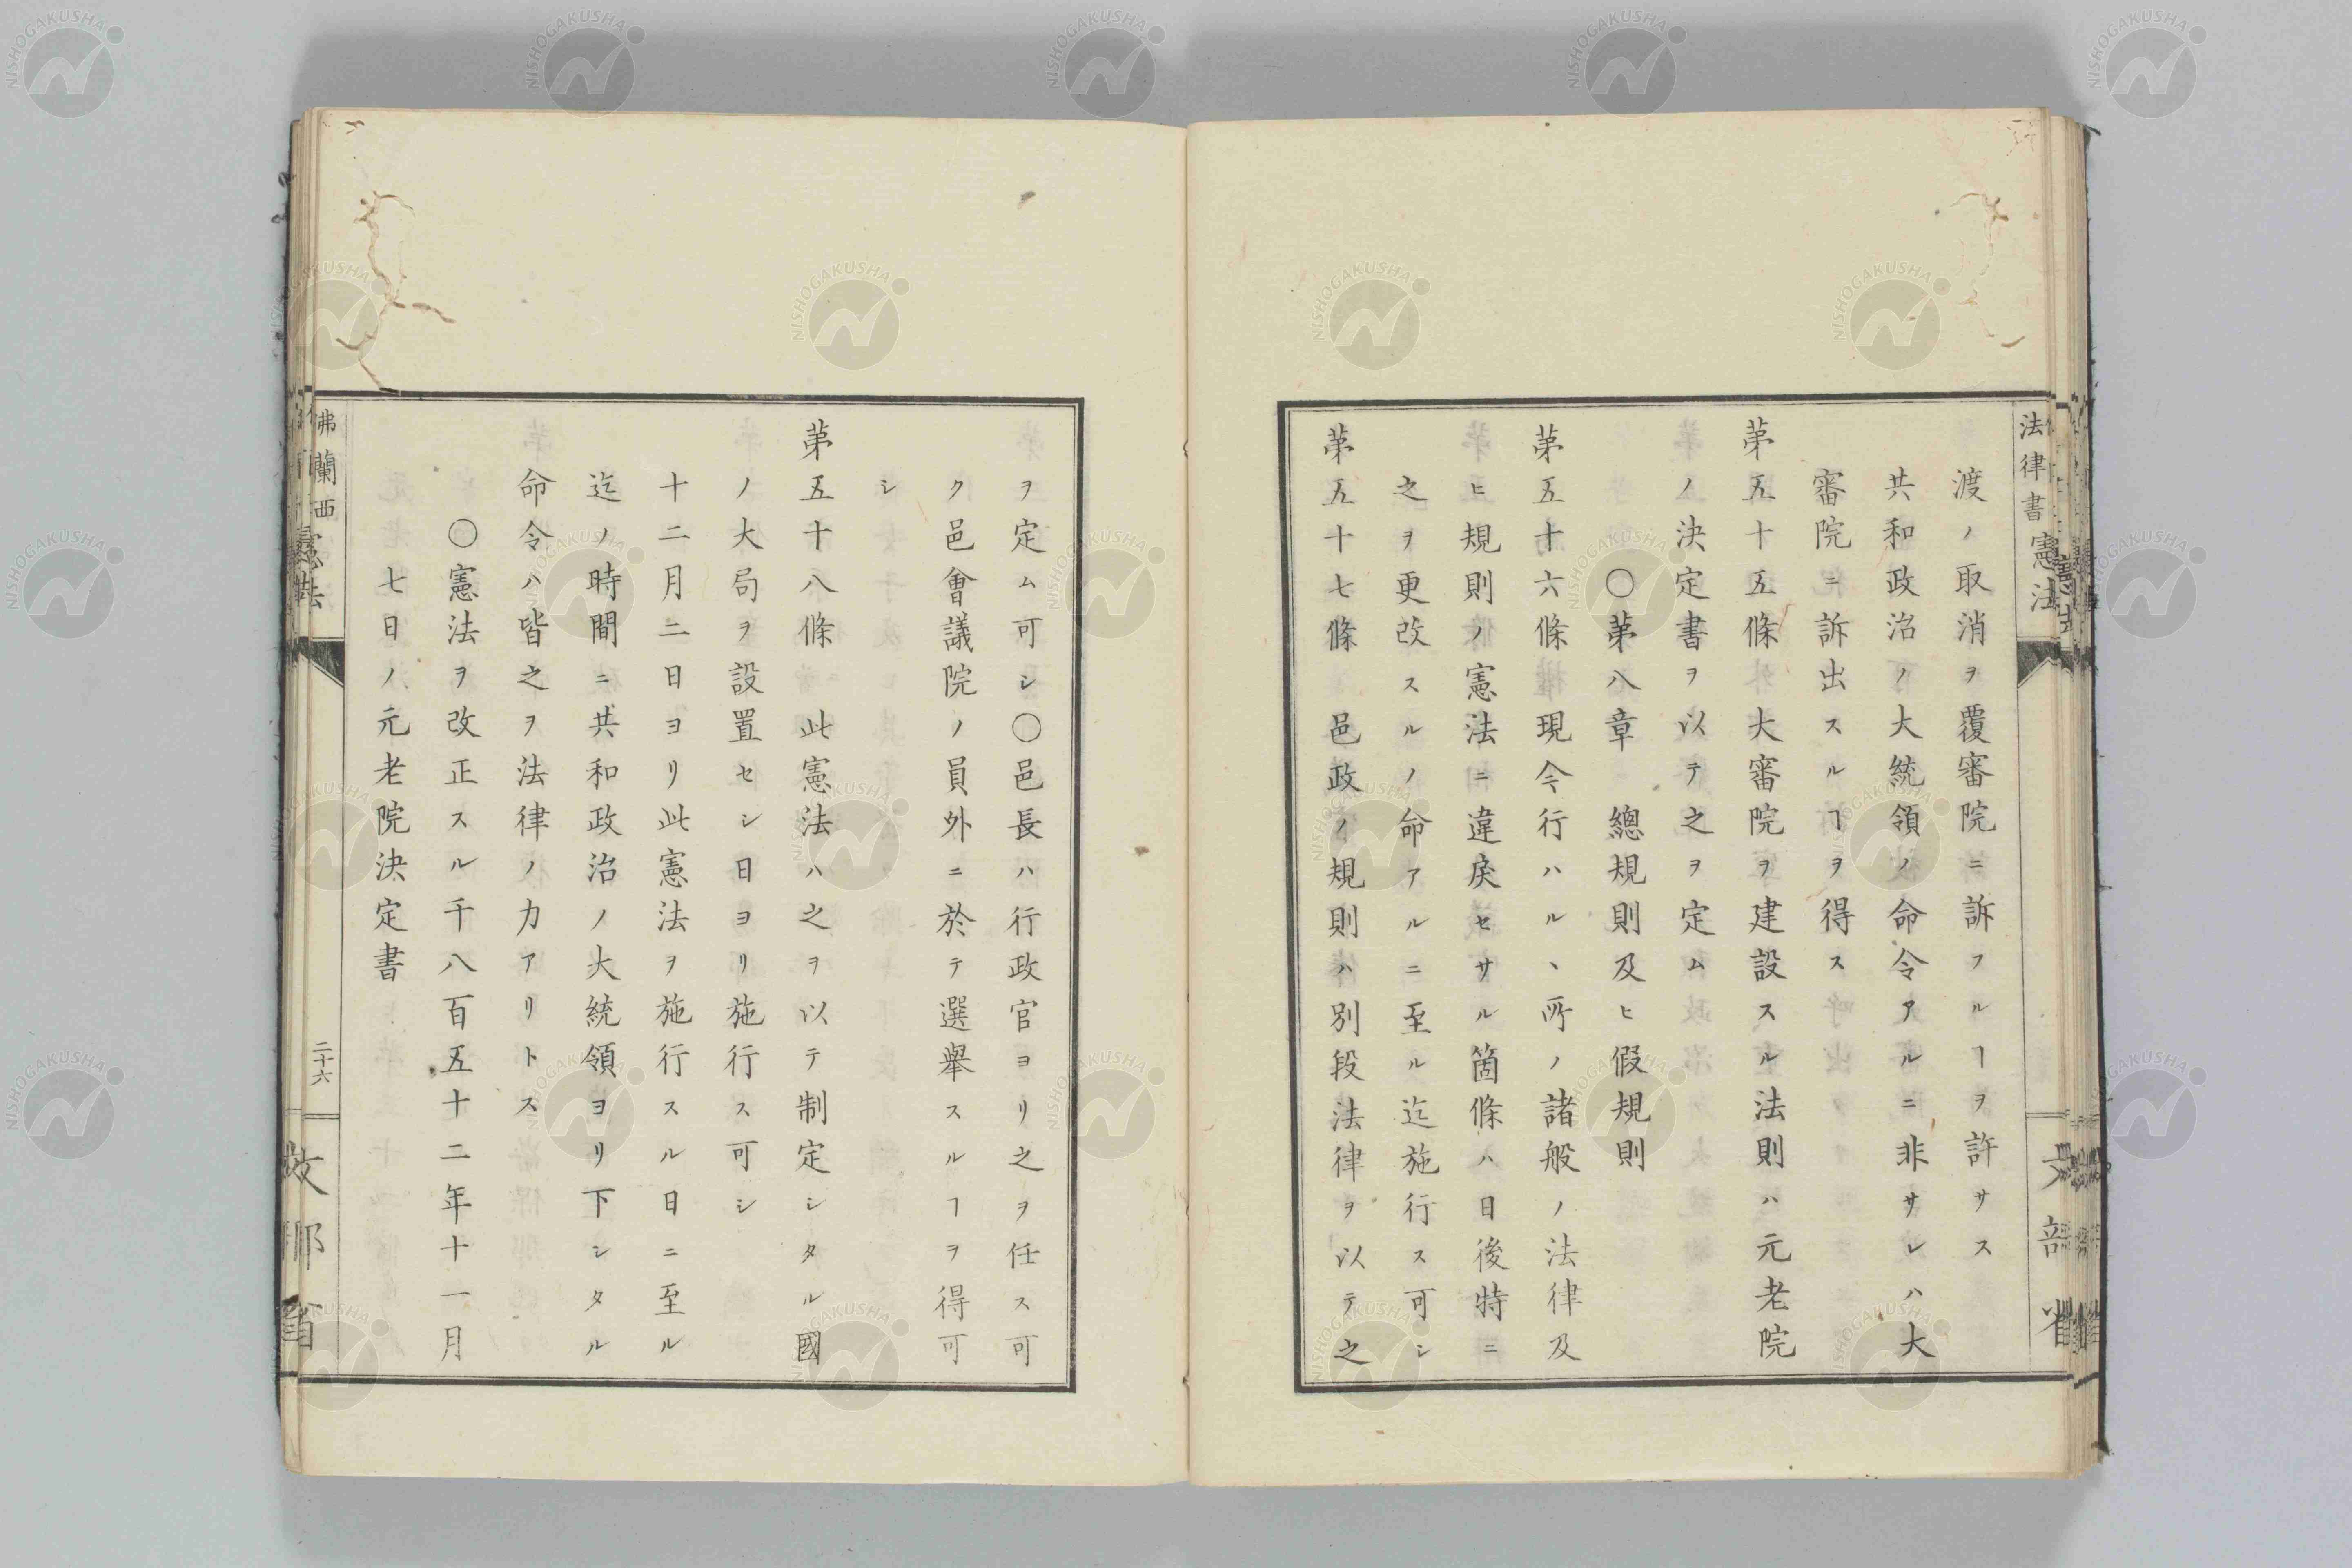 法律書 憲法
渡ノ取消ヲ覆審院ニ訴フルヿヲ許サス
共和政治ノ大統領ノ命令アルニ非サレハ大
審院ニ訴出スルヿヲ得ス
第五十五條 大審院ヲ建設スル法則ハ元老院
ノ決定書ヲ以テ之ヲ定ム
〇第八章 總規則及ヒ假規則
第五十六條 現今行ハルヽ所ノ諸般ノ法律及
ヒ規則ノ憲法ニ違戾セサル箇條ハ日後特ニ
之ヲ更改スルノ命アルニ至ル迄施行ス可シ
第五十七條 邑政ノ規則ハ別段法律ヲ以テ之
文部省
ヲ定ム可シ〇邑長ハ行政官ヨリ之ヲ任ス可
ク邑會議院ノ員外ニ於テ選擧スルヿヲ得可
シ
第五十八條 此憲法ハ之ヲ以テ制定シタル國
ノ大局ヲ設置セシ日ヨリ施行ス可シ
十二月二日ヨリ此憲法ヲ施行スル日ニ至ル
迄ノ時間ニ共和政治ノ大統領ヨリ下シタル
命令ハ皆之ヲ法律ノ力アリトス
〇憲法ヲ改正スル千八百五十二年十一月
七日ノ元老院決定書
佛蘭西 憲法
二十六
NISHOGAKUSHA